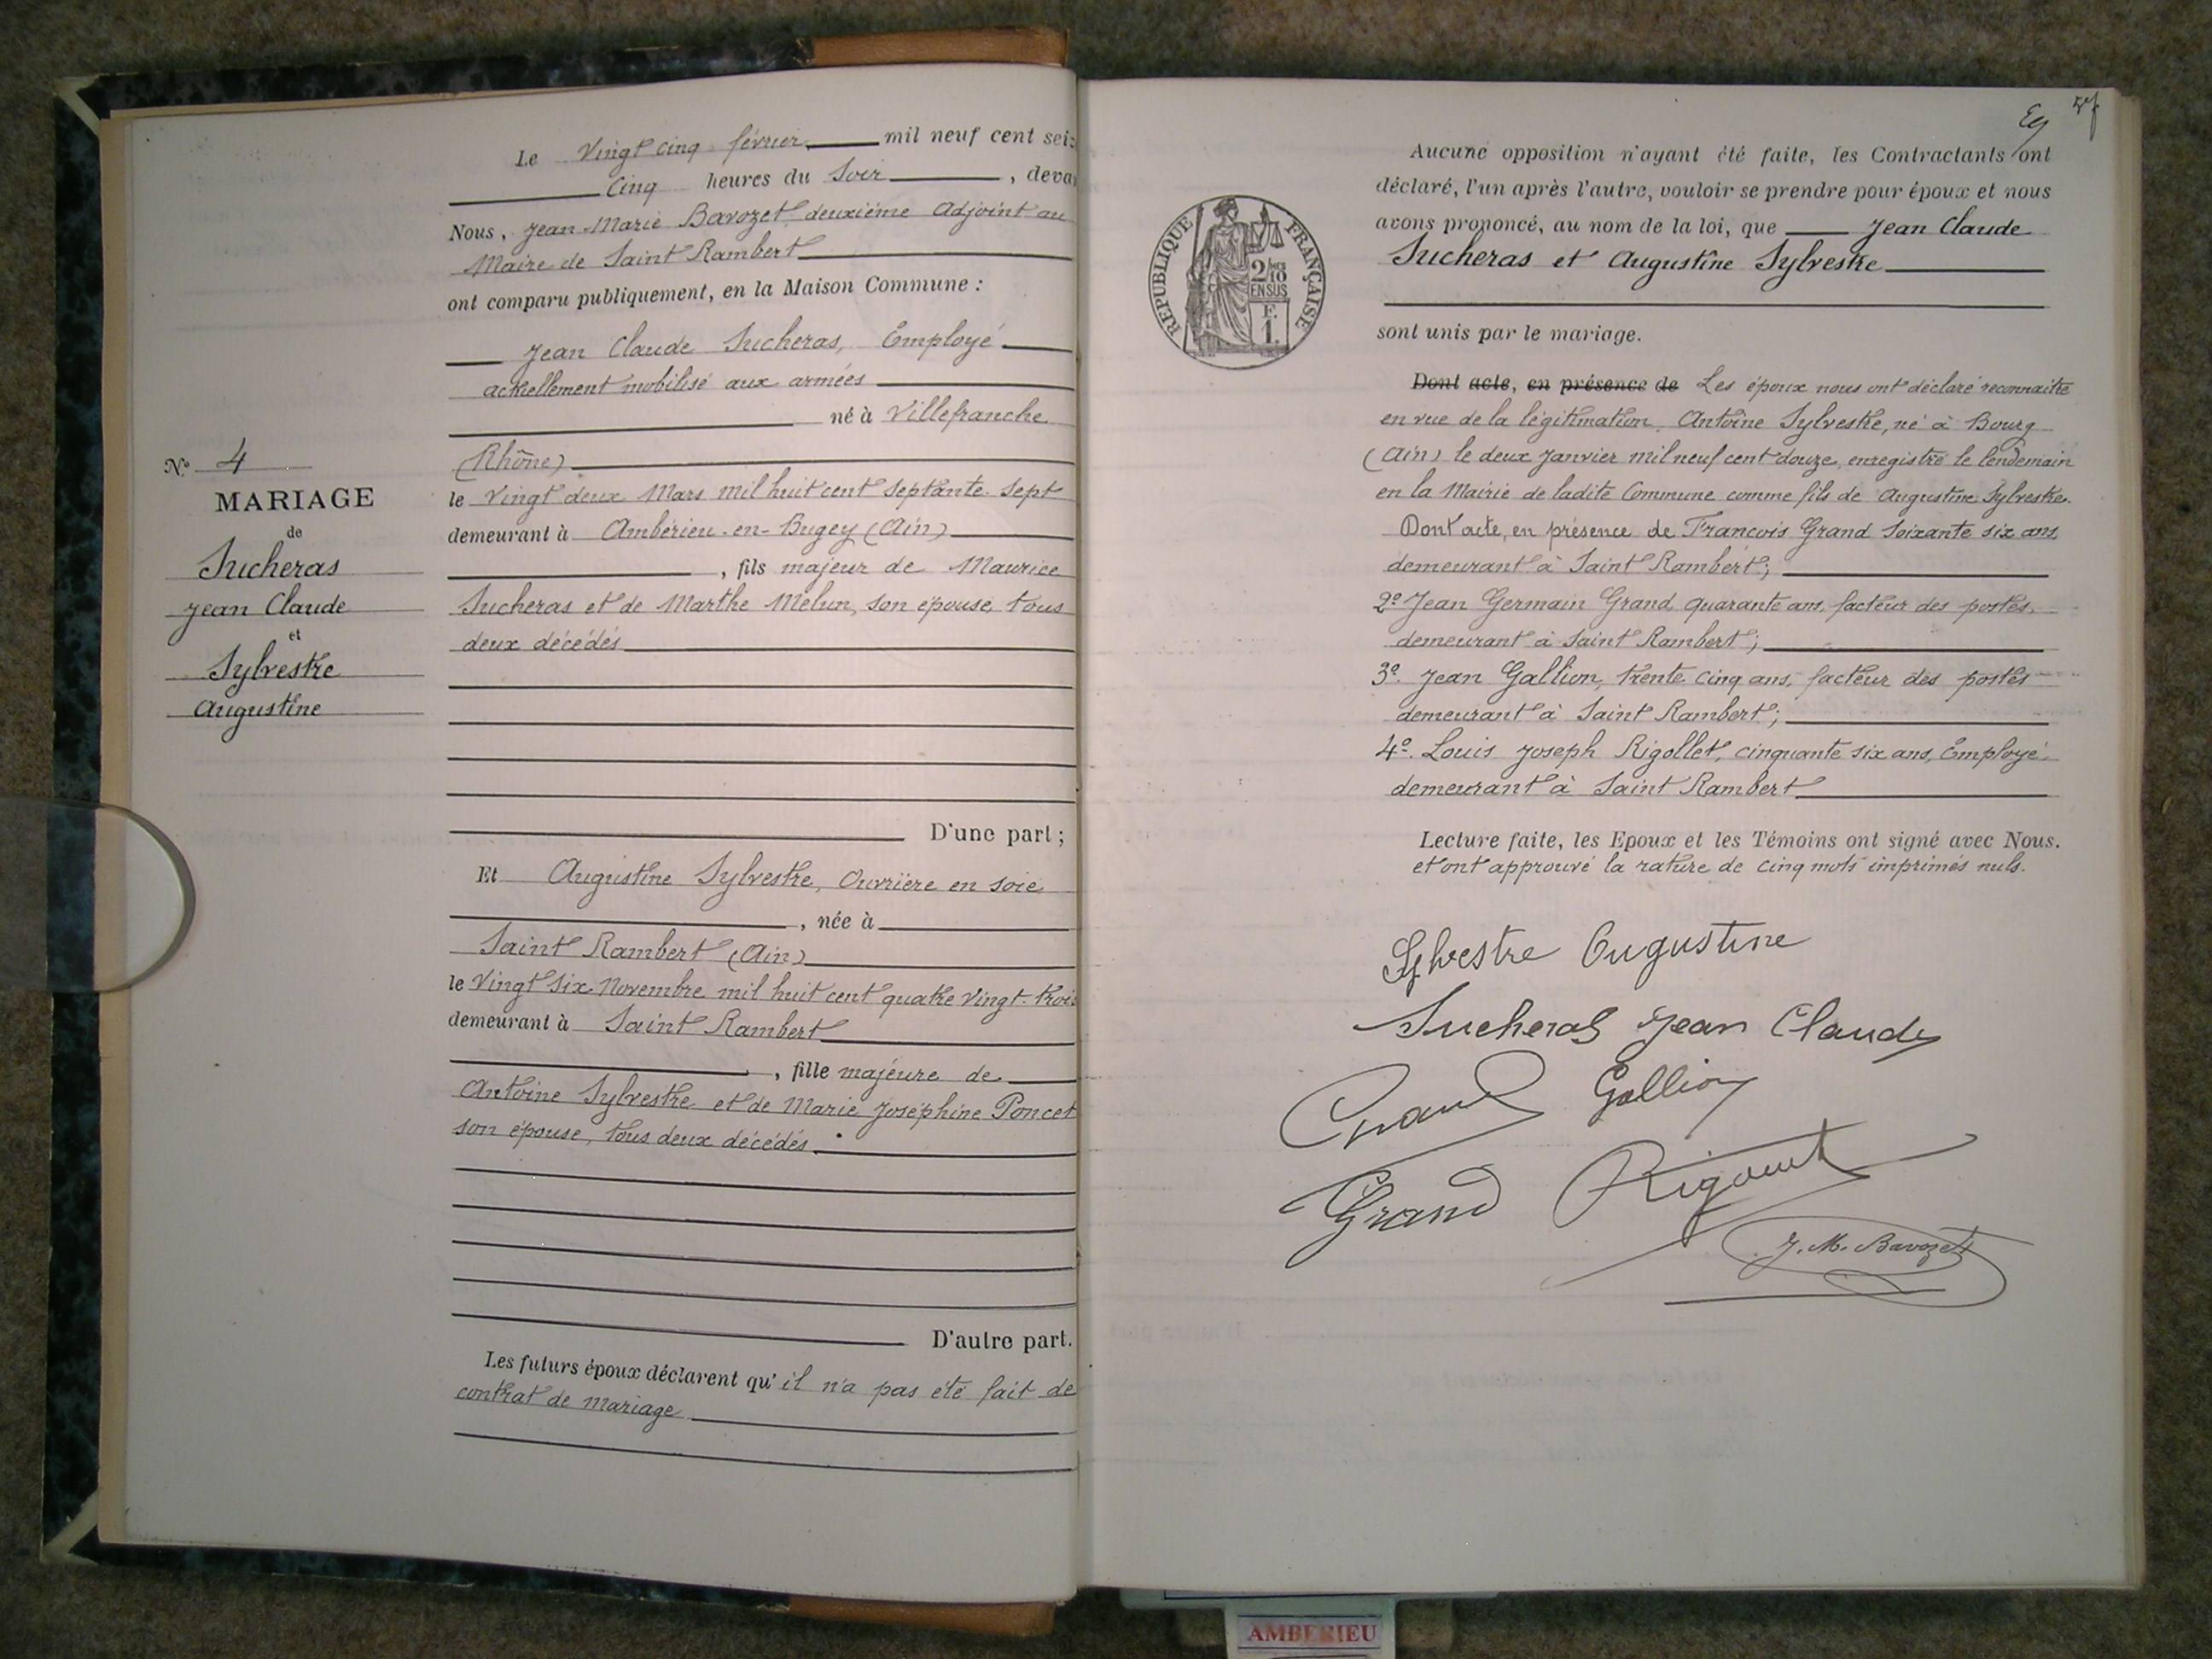 Le Vingt cinq février mil neuf cent sei
Cinq heures du Soir, deva
Nous, Jean-Marie Bavozet deuxième Adjoint au
Maire de Saint Rambert
ont comparu publiquement, en la Maison Commune :
Jean Claude Sucheras, Employé
actuellement mobilisé aux armées
né à Villefranche
(Rhône)
le Vingt deux Mars mil huit cent septante-sept
demeurant à Ambérieu-en-Bugey (Ain)
, fils majeur de Maurice
Sucheras et de Marthe Melun, son épouse, tous
deux décédés
D'une part ;
N° 4
MARIAGE
de
Sucheras
Jean Claude
et
Sylvestre
Augustine
Et Augustine Sylvestre, Ouvrière en soie
, née à
Saint Rambert (Ain)
le Vingt Six Novembre mil huit cent quatre vingt-trois
demeurant à Saint Rambert
, fille majeure de
Antoine Sylvestre et de Marie Joséphine Poncet
son épouse, tous deux décédés.
D'autre part.
Les futurs époux déclarent qu'il n'a pas été fait de
contrat de mariage
Aucune opposition n'ayant été faite, les Contractants ont
déclaré, l'un après l'autre, vouloir se prendre pour époux et nous
avons prononcé, au nom de la loi, que Jean Claude
Sucheras et Augustine Sylvestre
sont unis par le mariage.
RÉPUBLIQUE FRANÇAISE
2/10
EN SUS
F.
1.
Dont acte, en présence de Les époux nous ont déclaré reconnaître
en vue de la légitimation, Antoine Sylvestre, né à Bourg
(Ain) le deux Janvier mil neuf cent douze, enregistré le lendemain
en la Mairie de ladite Commune comme fils de Augustine Sylvestre.
Dont acte, en présence de François Grand soixante six ans,
demeurant à Saint Rambert;
2° Jean Germain Grand, quarante ans, facteur des postes,
demeurant à Saint Rambert;
3° Jean Gallion, trente cinq ans, facteur des postes
demeurant à Saint Rambert;
4° Louis Joseph Rigollet, cinquante six ans, Employé
demeurant à Saint Rambert
Lecture faite, les Epoux et les Témoins ont signé avec Nous.
et ont approuvé la rature de cinq mots imprimés nuls.
Sylvestre Augustine
Sucheras Jean Claude
Grand Gallion
Grand
J. M. Bavozet
AMBERIEU